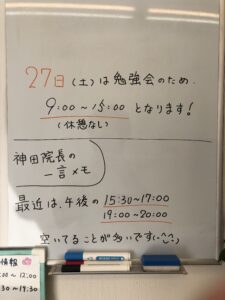 27日(土)は勉強会のため
9:00～15:00 となります!
(休憩なし)
神田院長の
一言メモ
最近は、午後の 15:30～17:00
19:00～20:00
空いてることが多いです(^-^)
情報
:00～12:00
:30～19:30